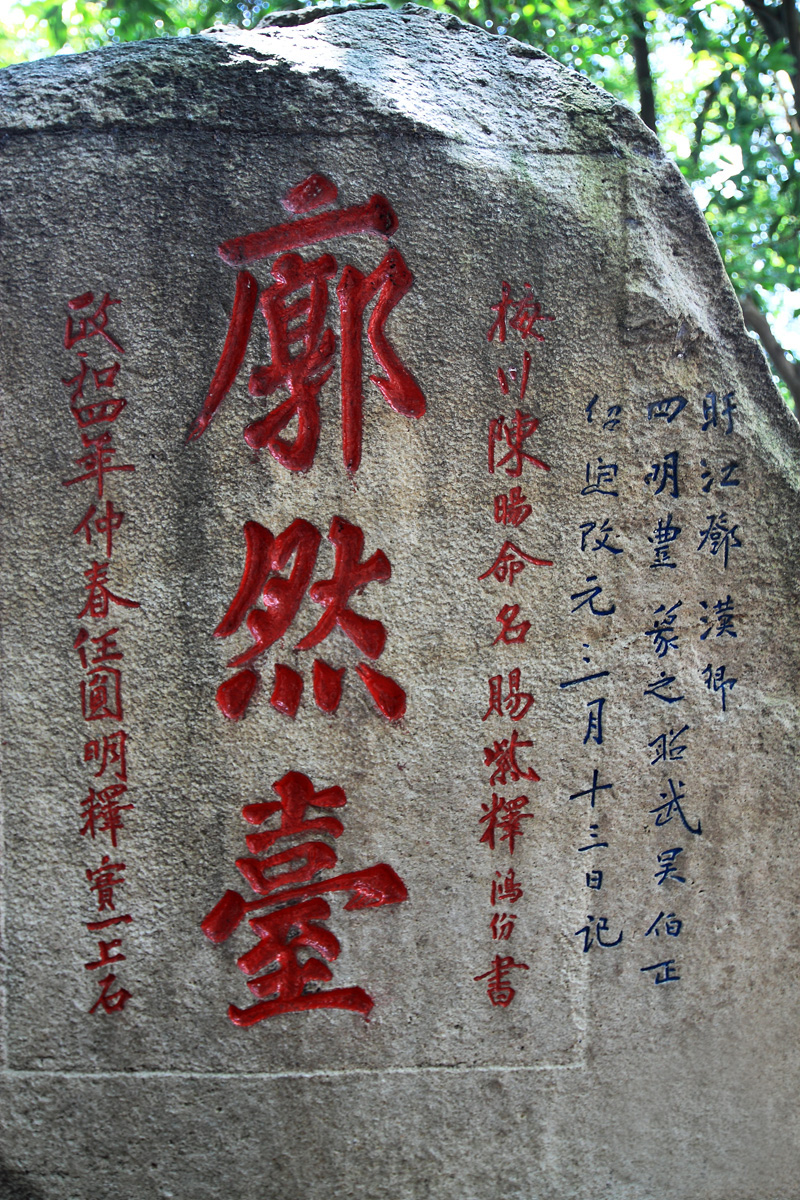 盱江漢卿
四明豐之昭武吴伯正
绍改元三月十三日记
梅川陳暘命名賜紫釋鴻份書
廓然臺
政和四年仲春住圓明釋實一上石